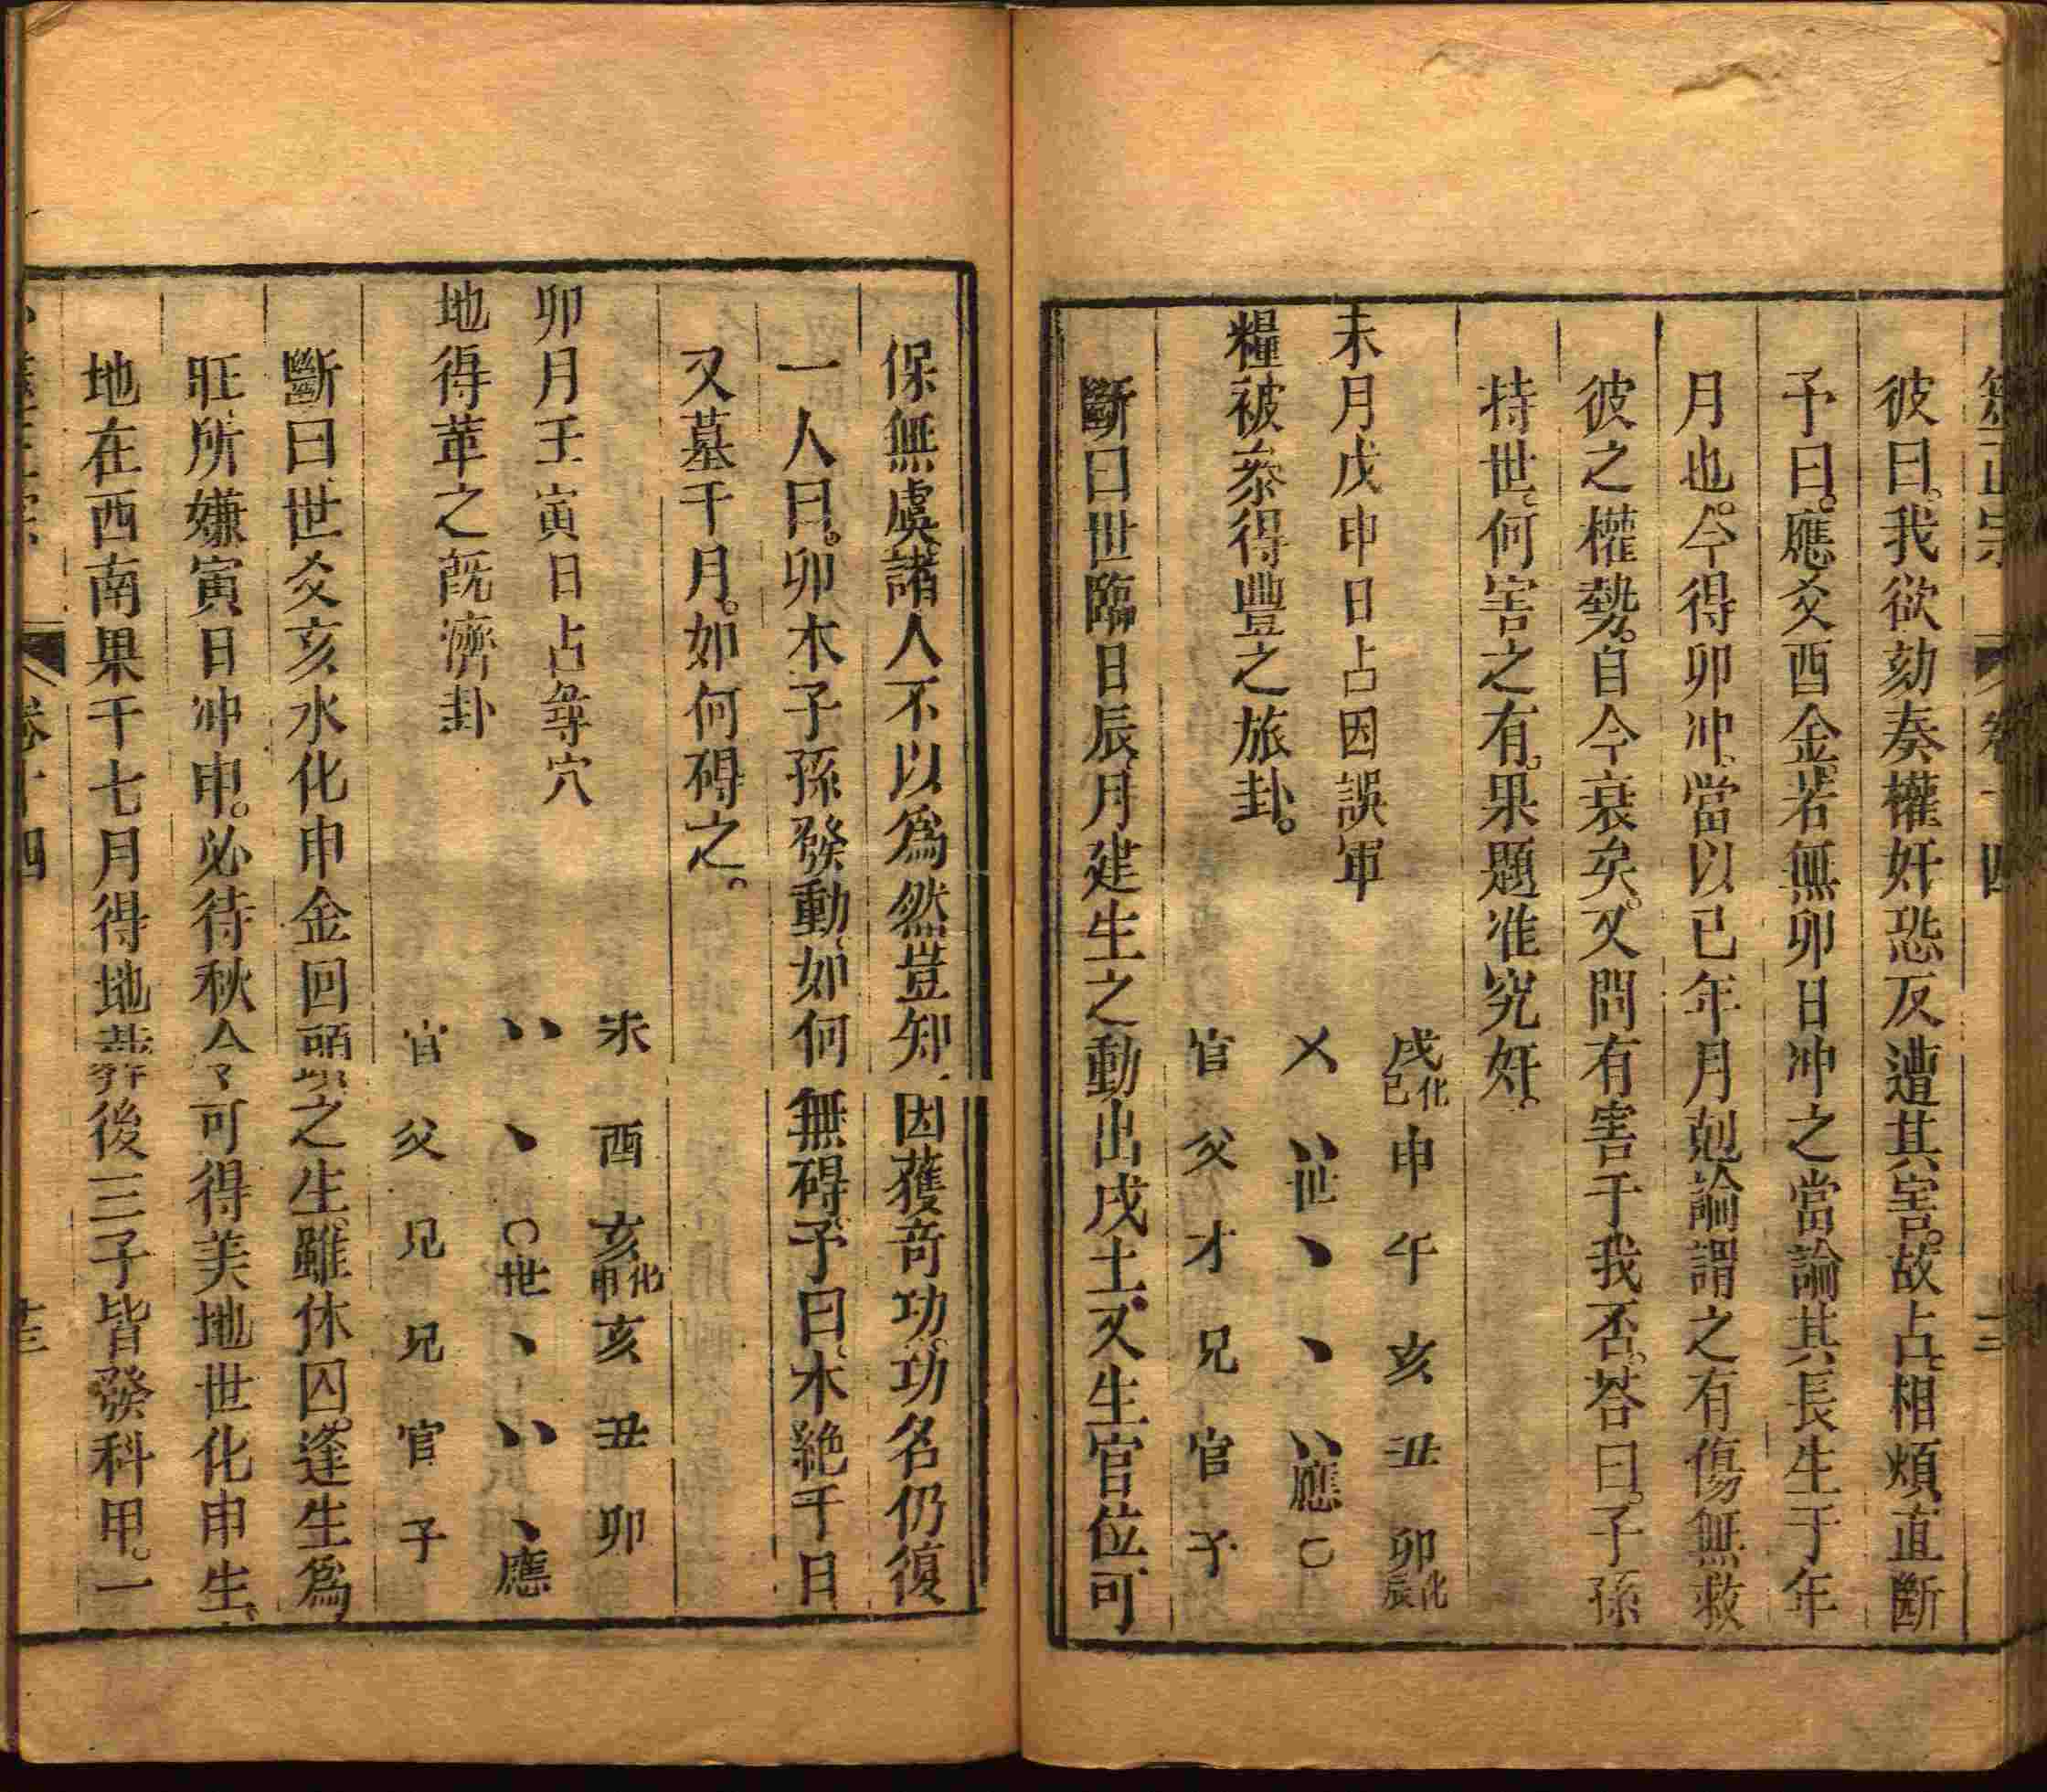 彼曰。我欲劾奏權奸恐反遭其害。故占。相煩直斷
予曰。應爻酉金。若無卯日冲之當論其長生于年
月也。今得卯冲、當以巳年月尅論謂之有傷無救
彼之權勢。自今衰矣。又問有害于我否。荅曰。子孫
持世。何害之有。果題准究奸。
未月戊申日占因誤軍
糧被叅得豐之旅卦。
戌化巳 申 午 亥 丑 卯化辰
乂 〃世 丶 丶 〃應 〇
官 父 才 兄 官 子
斷曰世臨日辰、月建生之動出戌土、又生官位、可
保無虞諸人不以爲然豈知、因獲奇功。功名仍復
一人曰。卯木子孫發動、如何無碍、予曰、木絶于日
又墓于月。如何碍之。
卯月壬寅日占尋穴
地得革之旣濟卦
未 酉 亥化申 亥 丑 卯
〃 丶 〇世 丶 〃 丶應
官 父 兄 兄 官 子
斷曰、世爻亥水化申金回頭之生。雖休囚。逢生爲
旺、所嫌寅日冲申。必待秋令可得美地世化申生、
地在西南果于七月得地葬後三子皆發科甲。一
卷十四